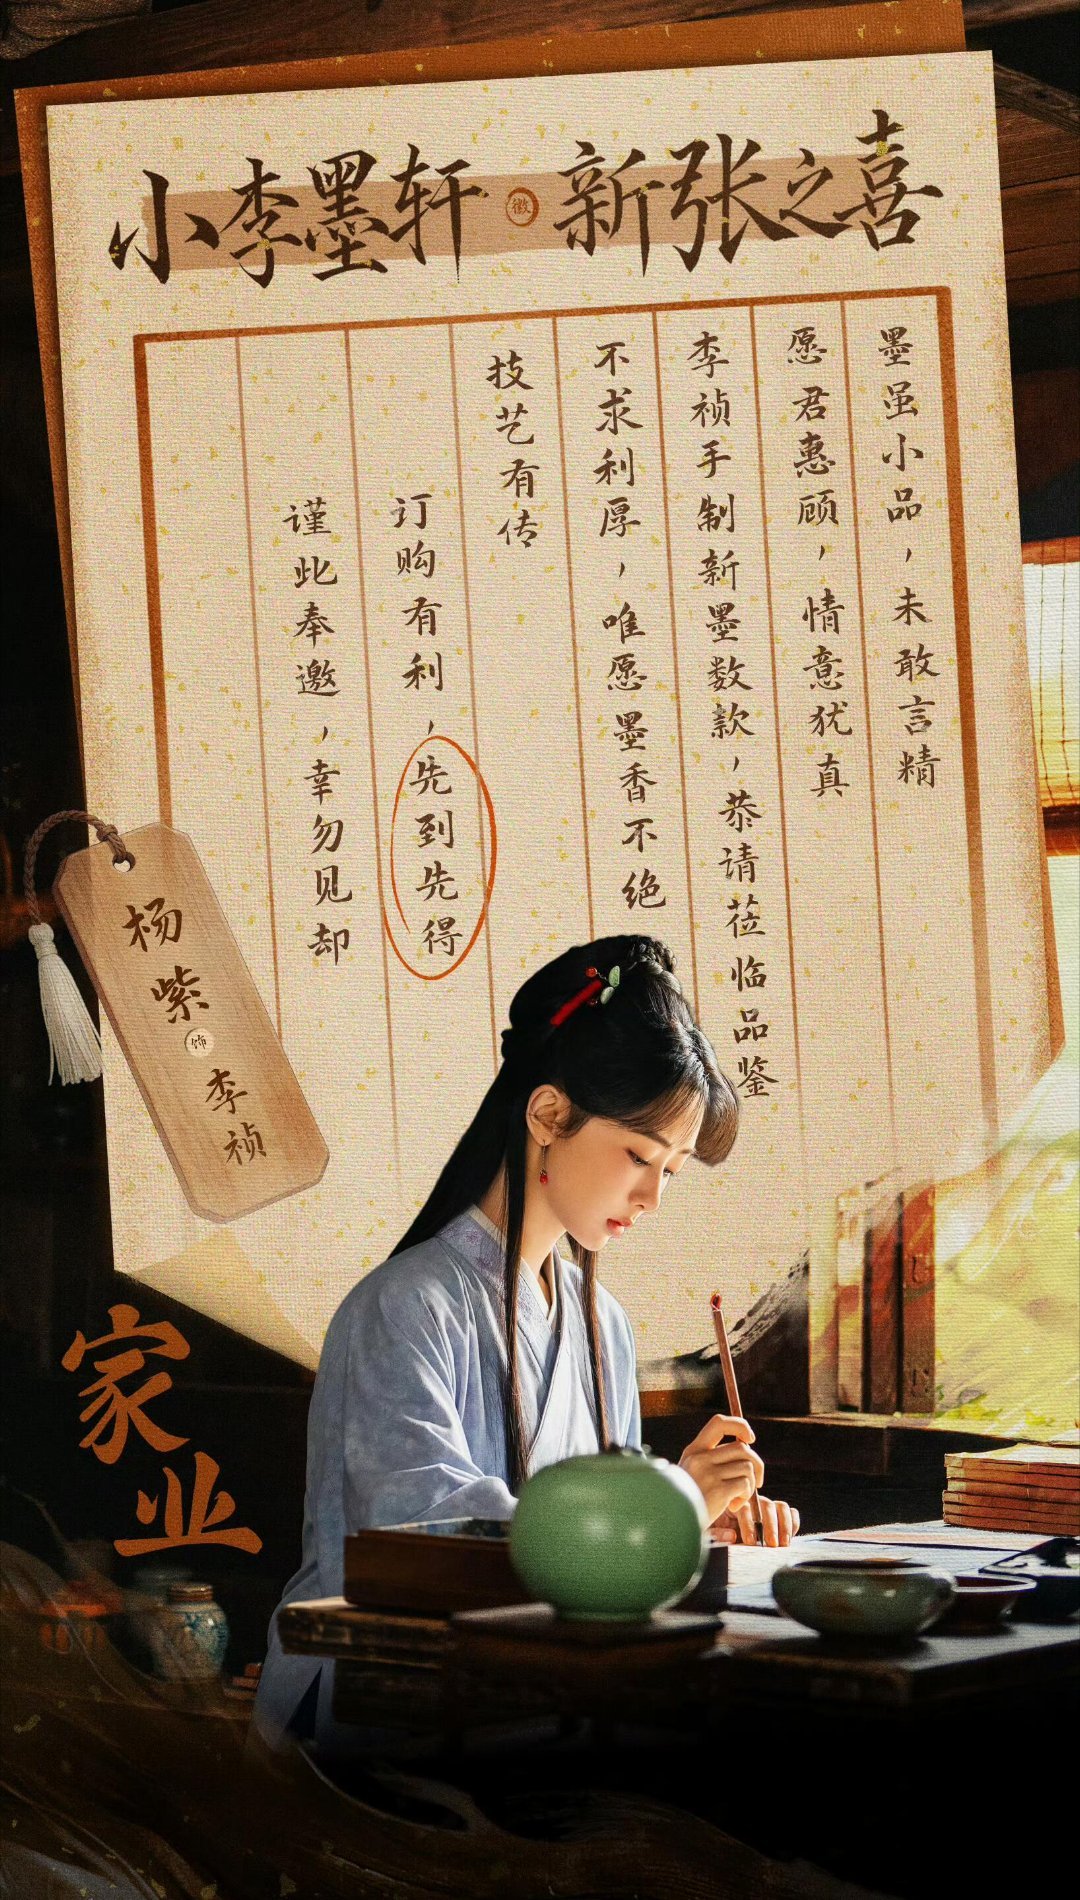 小李墨轩 徽 新张之喜
墨虽小品，未敢言精
愿君惠顾，情意犹真
李祯手制新墨数款，恭请莅临品鉴
不求利厚，唯愿墨香不绝
技艺有传
订购有利，先到先得
谨此奉邀，幸勿见却
杨紫 饰 李祯
家业